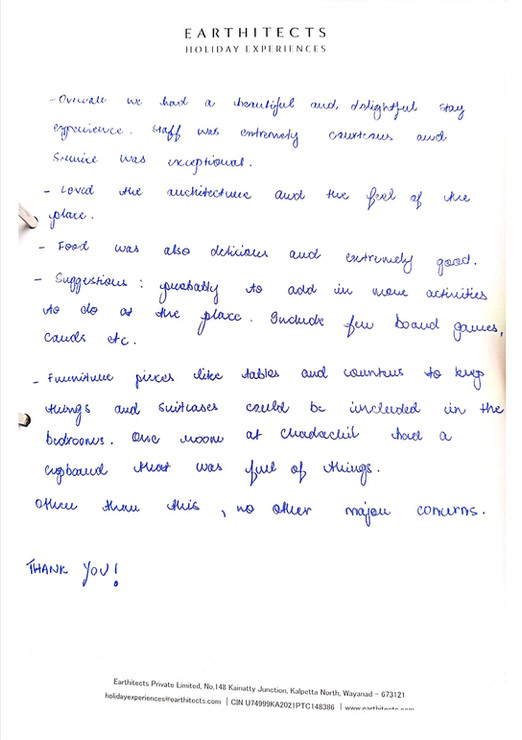 EARTHITECTS
HOLIDAY EXPERIENCES
- Overall we had a beautiful and delightful stay
experience. Staff was extremely courteous and
Service was exceptional.
- Loved the architecture and the feel of the
place.
- Food was also delicious and extremely good.
- Suggestions : probably to add in more activities
to do at the place. Include few board games,
cards etc.
- Furniture pieces like tables and counters to keep
things and suitcases could be included in the
bedrooms. One room at Chadachil had a
cupboard that was full of things.
Other than this, no other major concerns.
THANK YOU!
Earthitects Private Limited, No,148 Kainatty Junction, Kalpetta North, Wayanad – 673121
holidayexperiences@earthitects.com | CIN U74999KA2021PTC148386 | www.earthitects.com